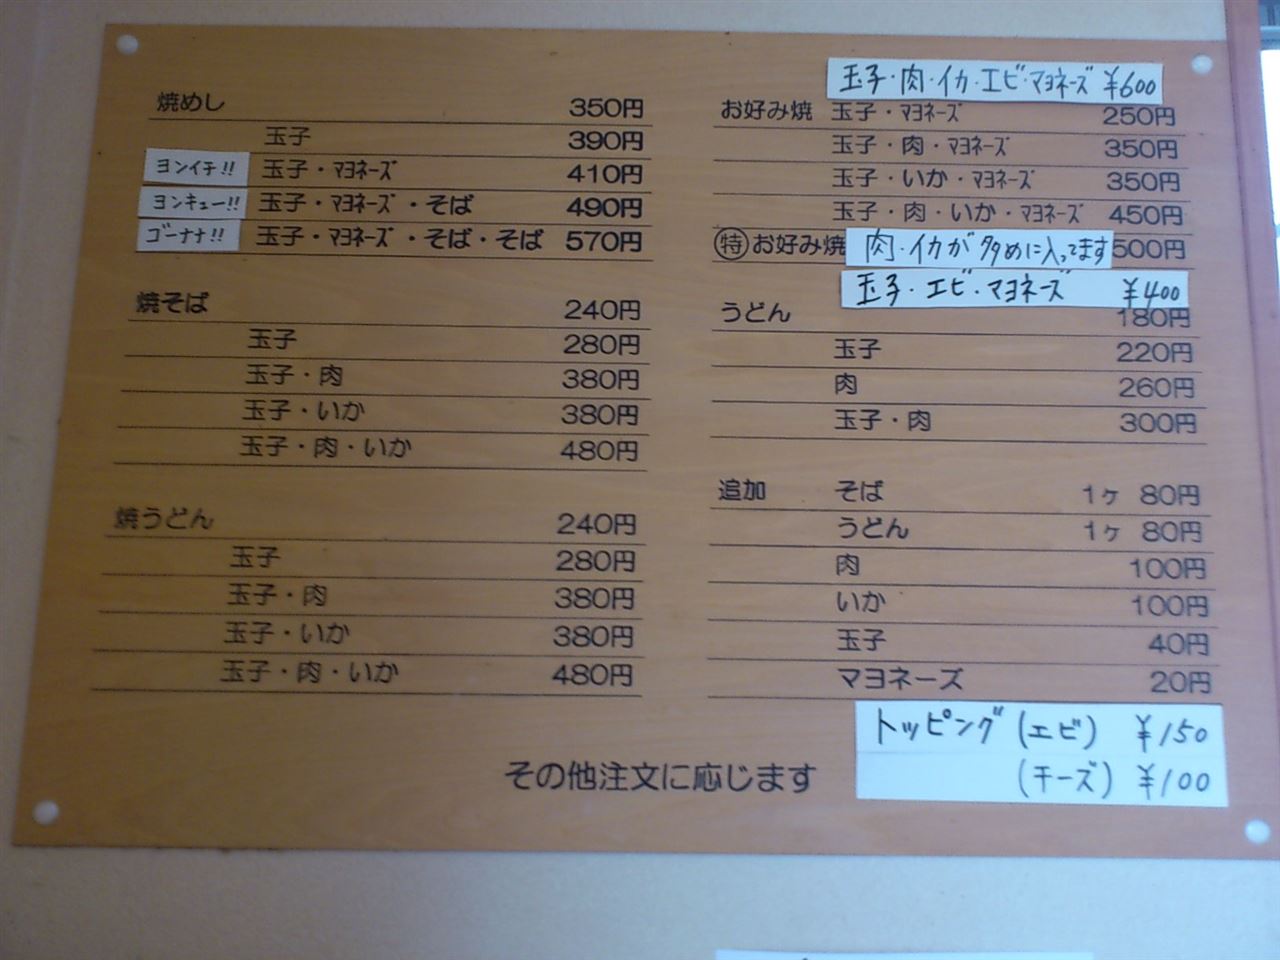 焼めし 350円
玉子 390円
ヨンイチ!! 玉子・マヨネーズ 410円
ヨンキュー!! 玉子・マヨネーズ・そば 490円
ゴーナナ!! 玉子・マヨネーズ・そば・そば 570円
焼そば 240円
玉子 280円
玉子・肉 380円
玉子・いか 380円
玉子・肉・いか 480円
焼うどん 240円
玉子 280円
玉子・肉 380円
玉子・いか 380円
玉子・肉・いか 480円
玉子・肉・イカ・エビ・マヨネーズ ¥600
お好み焼 玉子・マヨネーズ 250円
玉子・肉・マヨネーズ 350円
玉子・いか・マヨネーズ 350円
玉子・肉・いか・マヨネーズ 450円
㊕お好み焼 肉・イカが多めに入ってます 500円
玉子・エビ・マヨネーズ ¥400
うどん 180円
玉子 220円
肉 260円
玉子・肉 300円
追加 そば 1ヶ 80円
うどん 1ヶ 80円
肉 100円
いか 100円
玉子 40円
マヨネーズ 20円
トッピング(エビ) ¥150
(チーズ) ¥100
その他注文に応じます